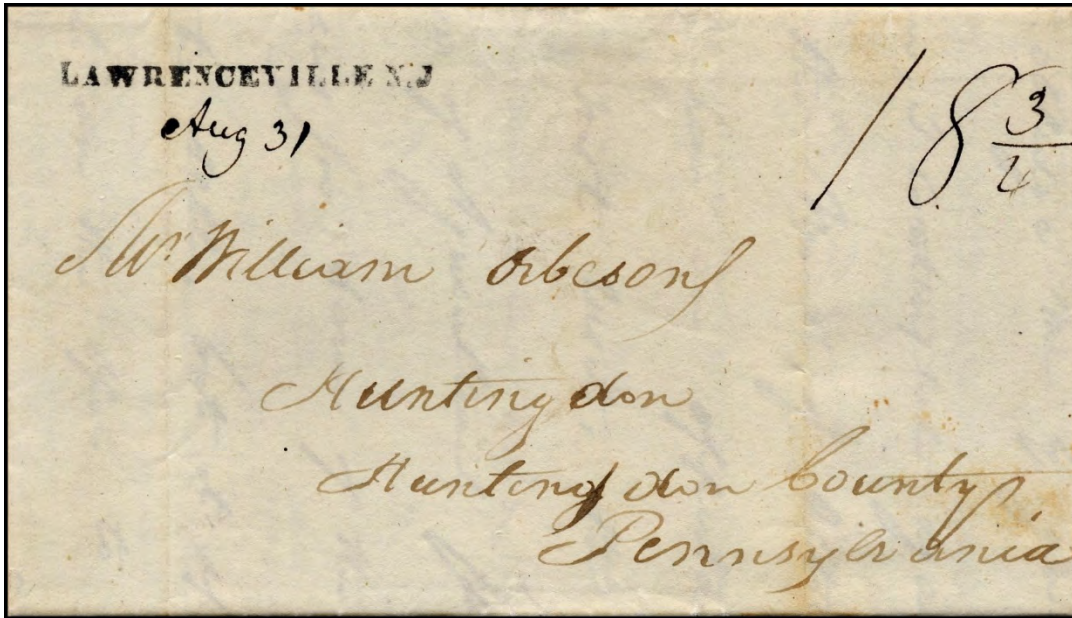 LAWRENCEVILLE N.J
Aug 31
18 3/4
Mr William Orbeson
Huntingdon
Huntingdon County
Pennsylvania